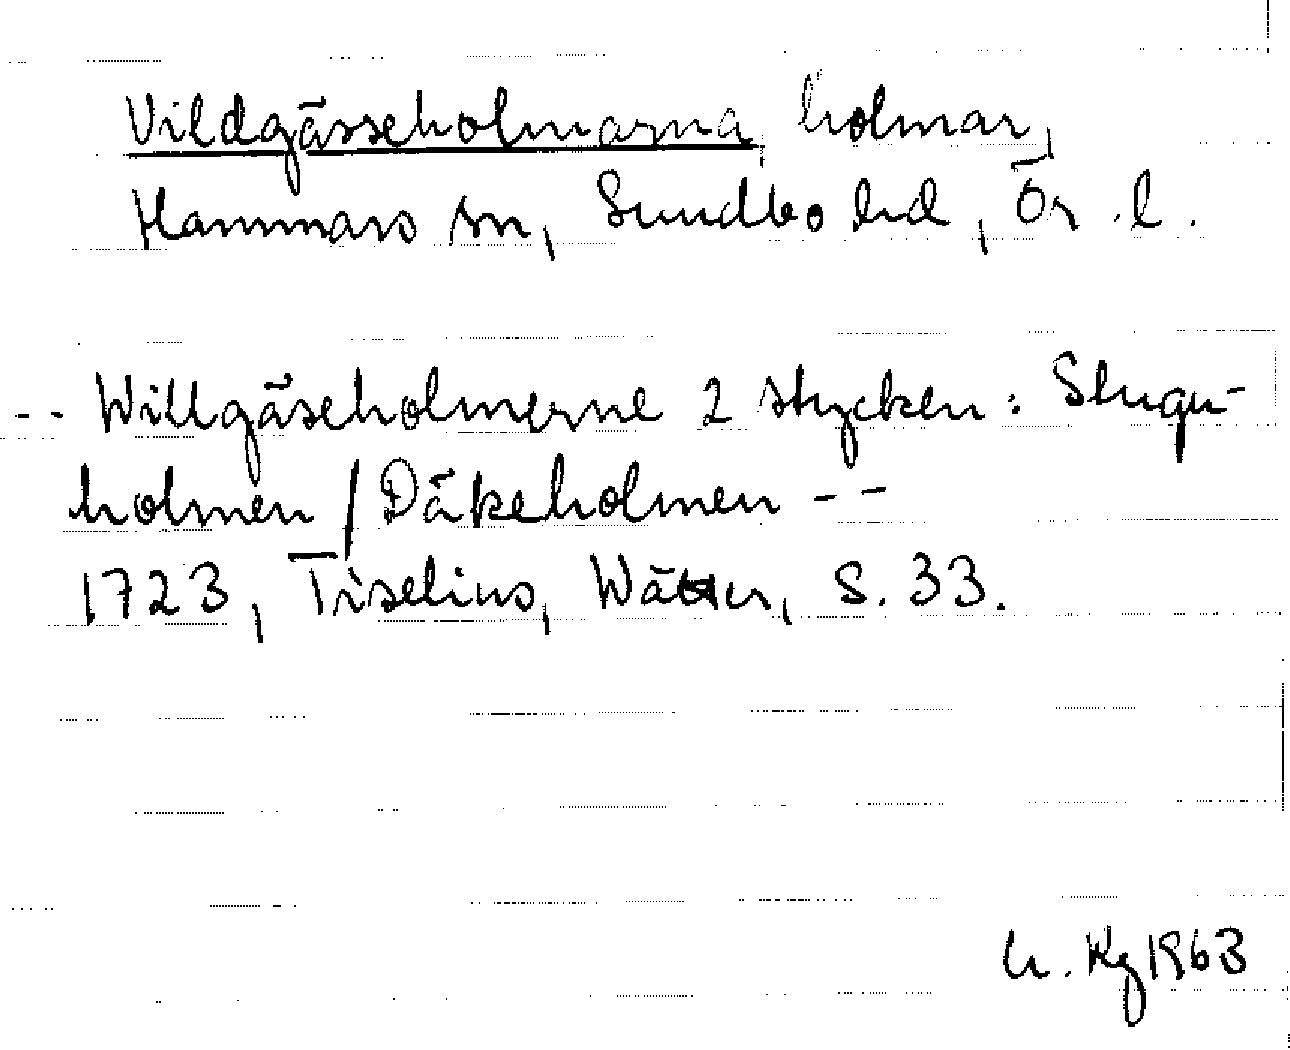 Vildgässeholmarna, holmar,
Hammars sn, Sundbo hd, Ör. l.
-- Willgåseholmerne 2 stycken: Slugu-
holmen / Dåkeholmen --
1723, Tiselius, Wätter, S. 33.
Kg 1963